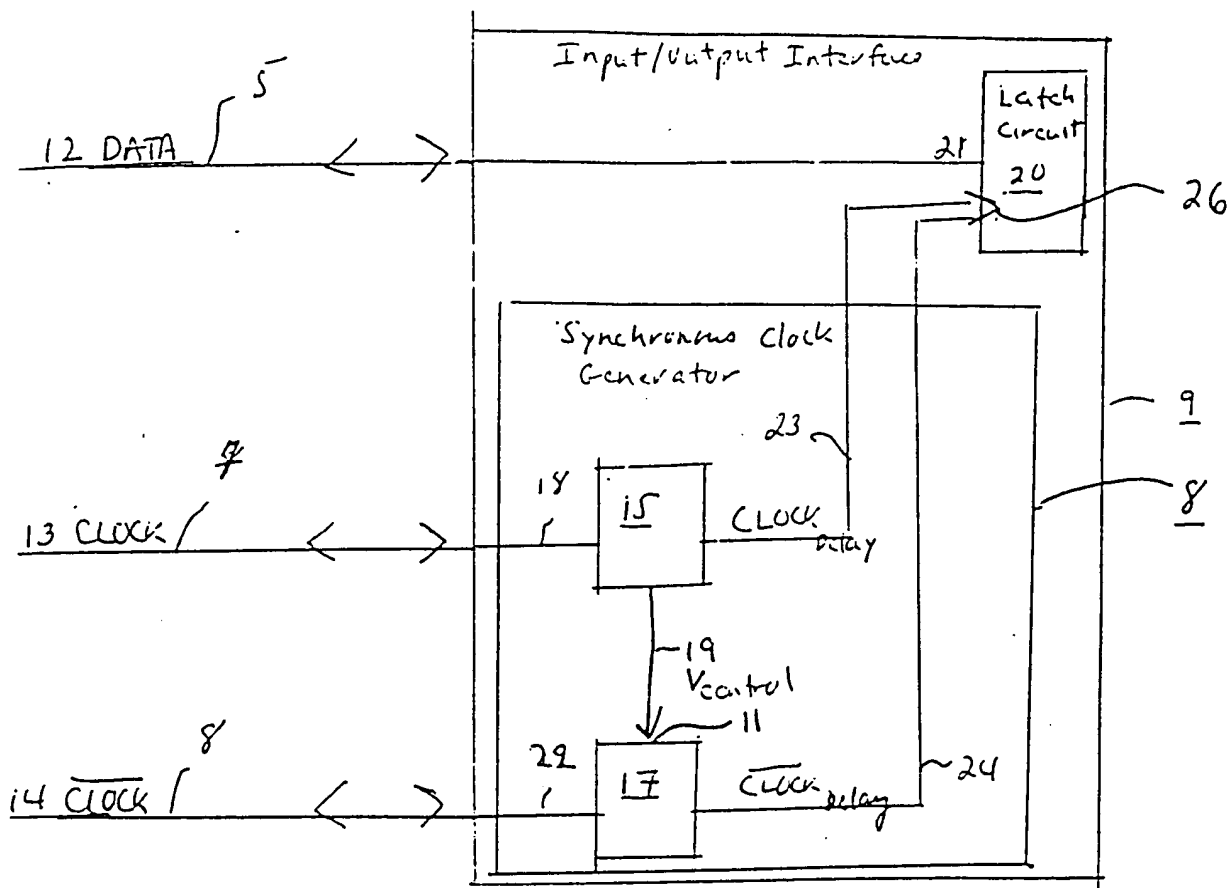 Input/Output Interface
5
Latch
Circuit
20
12 DATA
21
26
Synchronous Clock
Generator
23
9
7
18
15
8
13 CLOCK
CLOCK Delay
19
Vcontrol
11
8
22
17
24
14 C̅L̅O̅C̅K̅
C̅L̅O̅C̅K̅ Delay